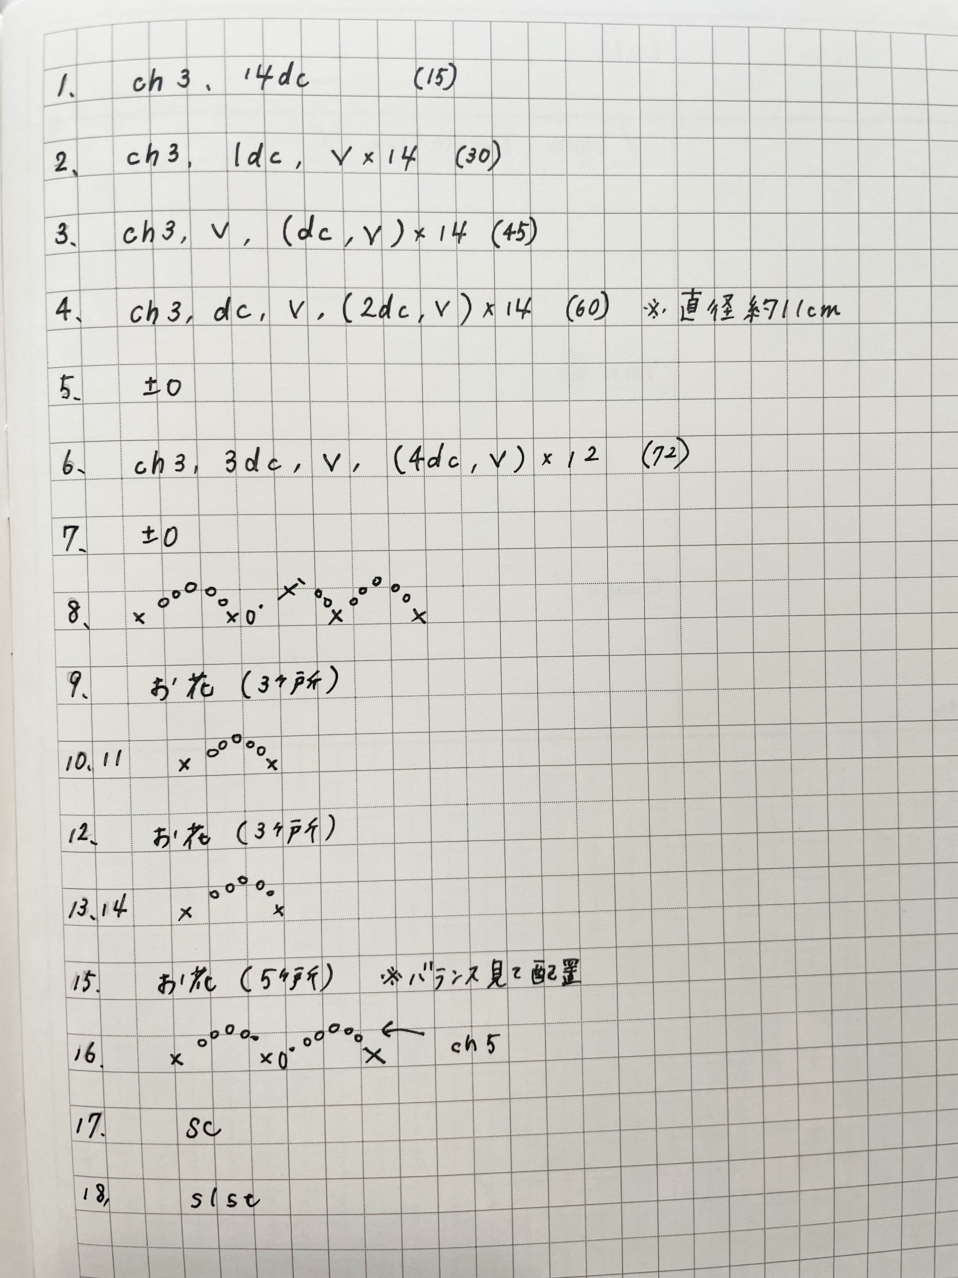 1. ch3、14dc (15)
2、ch3, 1dc, V×14 (30)
3、ch3, V, (dc, V)×14 (45)
4、ch3, dc, V, (2dc, V)×14 (60) ※直径約11cm
5、±0
6、ch3, 3dc, V, (4dc, V)×12 (72)
7、±0
8、
9、お花(3ヶ所)
10、11
12、お花(3ヶ所)
13、14
15. お花(5ヶ所) ※バランス見て配置
16. ← ch5
17. sc
18, slst